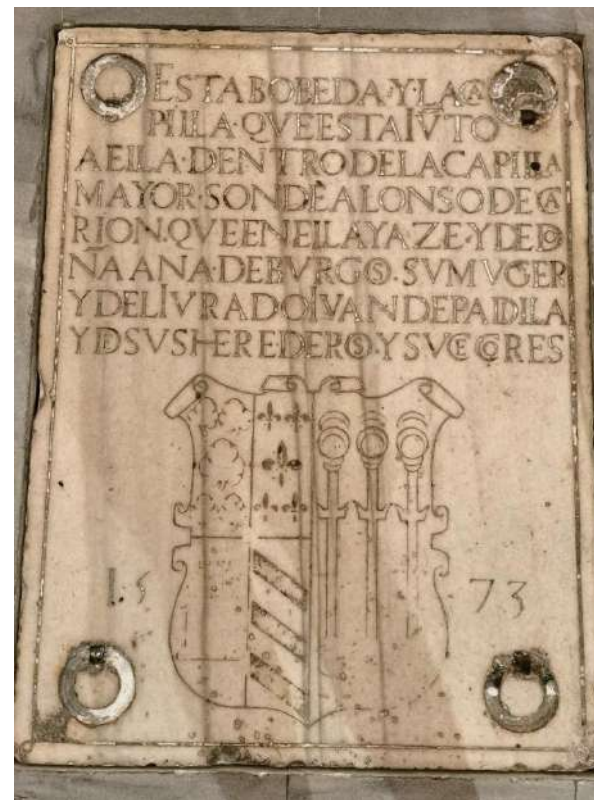 ESTA BOBEDA·Y·LA CA
PILLA·QVE ESTA IVTO
A ELLA·DENTRO DE LA CAPILLA
MAYOR·SON DE ALONSO DE CA
RION·QVE EN ELLA YAZE·Y DE DO
ÑA ANA·DE BVRGOS·SV MVGER
Y DEL IVRADO IVAN DE PADILLA
Y D SVS HEREDEROS·Y SVCECORES
1·5 73